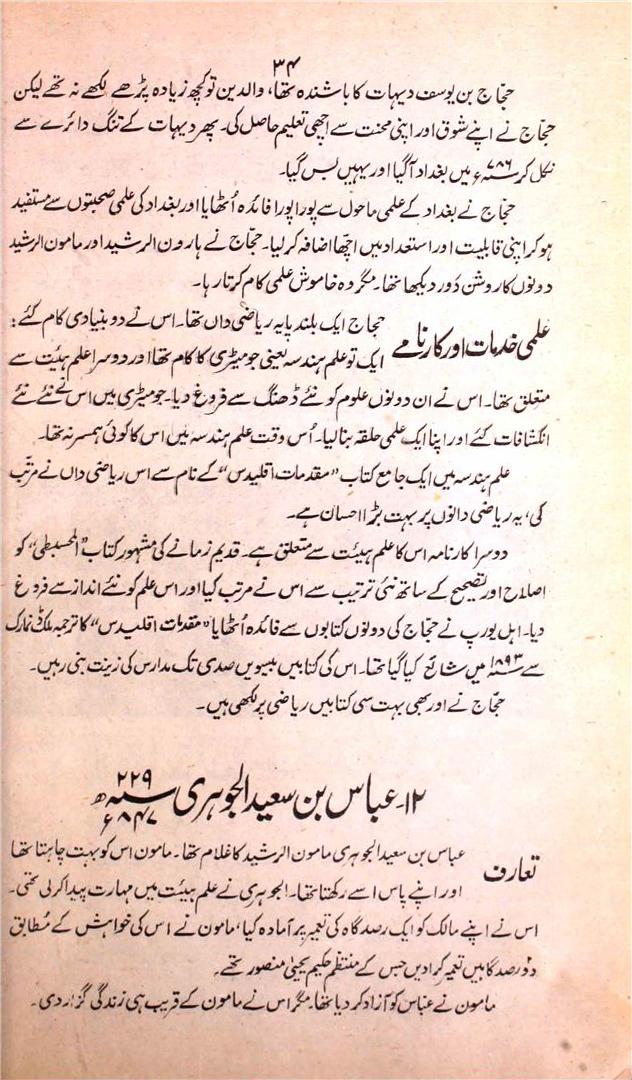 ۳۴
حجاج بن یوسف دیہات کا باشندہ تھا، والدین تو کچھ زیادہ پڑھے لکھے نہ تھے لیکن
حجاج نے اپنے شوق اور اپنی محنت سے اچھی تعلیم حاصل کی۔ پھر دیہات کے تنگ دائرے سے
نکل کر ۷۸۶ء میں بغداد آگیا اور یہیں بس گیا۔
حجاج نے بغداد کے علمی ماحول سے پورا پورا فائدہ اُٹھایا اور بغداد کی علمی صحبتوں سے مستفید
ہوکر اپنی قابلیت اور استعداد میں اچھا اضافہ کرلیا۔ حجاج نے ہارون الرشید اور مامون الرشید
دونوں کا روشن دَور دیکھا تھا۔ مگر وہ خاموش علمی کام کرتا رہا۔
علمی خدمات اور کارنامے حجاج ایک بلند پایہ ریاضی داں تھا۔ اس نے دو بنیادی کام کئے:
ایک تو علم ہندسہ یعنی جومیٹری کا کام تھا اور دوسرا علم ہیئت سے
متعلق تھا۔ اس نے ان دونوں علوم کو نئے ڈھنگ سے فروغ دیا۔ جومیٹری میں اس نے نئے نئے
انکشافات کئے اور اپنا ایک علمی حلقہ بنالیا۔ اُس وقت علم ہندسہ میں اس کا کوئی ہمسر نہ تھا۔
علم ہندسہ میں ایک جامع کتاب "مقدمات اقلیدس" کے نام سے اس ریاضی داں نے مرتب
کی، یہ ریاضی دانوں پر بہت بڑا احسان ہے۔
دوسرا کارنامہ اس کا علم ہیئت سے متعلق ہے۔ قدیم زمانے کی مشہور کتاب "المجسطی" کو
اصلاح اور تصحیح کے ساتھ نئی ترتیب سے اس نے مرتب کیا اور اس علم کو نئے انداز سے فروغ
دیا۔ اہل یورپ نے حجاج کی دونوں کتابوں سے فائدہ اُٹھایا "مقدمات اقلیدس" کا ترجمہ ملک ڈنمارک
سے ۱۸۹۳ء میں شائع کیا گیا تھا۔ اس کی کتابیں بیسویں صدی تک مدارس کی زینت بنی رہیں۔
حجاج نے اور بھی بہت سی کتابیں ریاضی پر لکھی ہیں۔
۱۲۔ عباس بن سعید الجوہری ۲۲۹ھ ۸۴۷ء
تعارف عباس بن سعید الجوہری مامون الرشید کا غلام تھا۔ مامون اس کو بہت چاہتا تھا
اور اپنے پاس اسے رکھتا تھا۔ الجوہری نے علم ہیئت میں مہارت پیدا کرلی تھی۔
اس نے اپنے مالک کو ایک رصدگاہ کی تعمیر پر آمادہ کیا، مامون نے اس کی خواہش کے مُطابق
دو رصدگاہیں تعمیر کرادیں جس کے منتظم حکیم یحییٰ منصور تھے۔
مامون نے عباس کو آزاد کردیا تھا۔ مگر اس نے مامون کے قریب ہی زندگی گزار دی۔